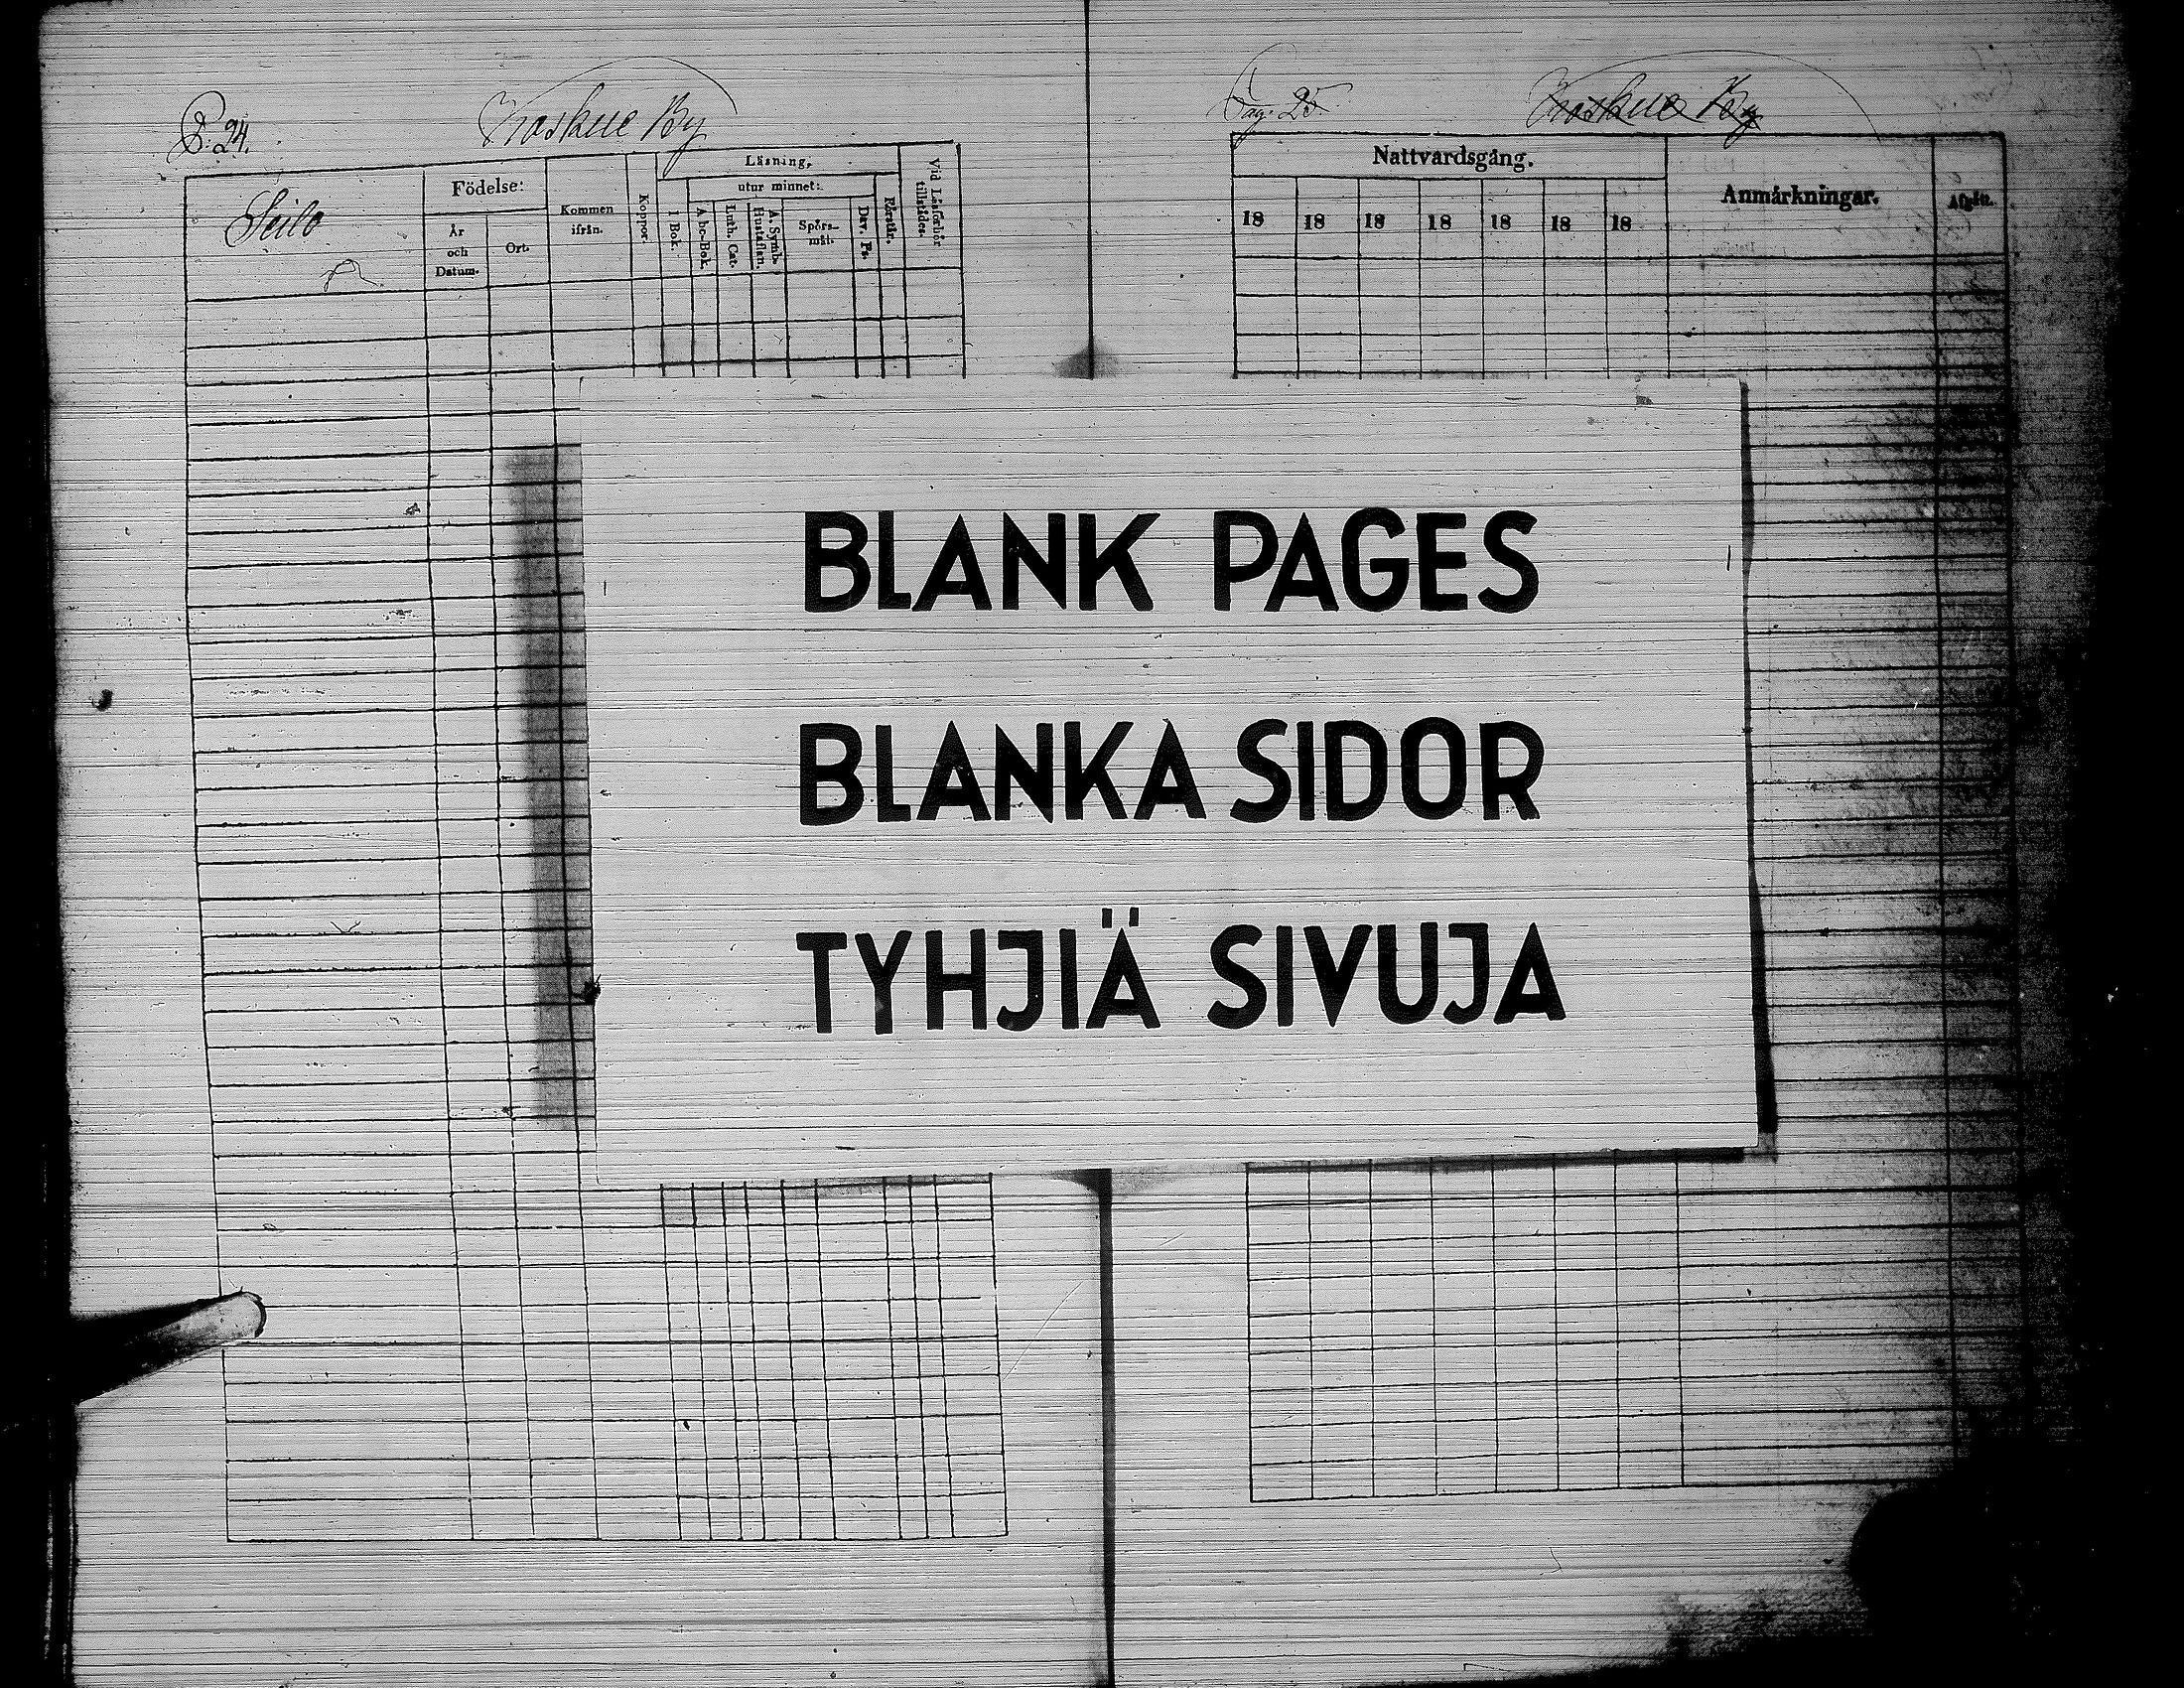 P: 24.
Koskue By
Seilo
Födelse:
År
och
Datum.
Ort.
Kommen
ifrån.
Koppor.
Läsning,
utur minnet:
I Bok.
Abc-Bok.
Luth. Cat.
A. Symb.
Hustaflan.
Spörs-
mål.
Dav. Ps.
Förstår.
Vid Läsförhör
tillstädes.
Pag. 25.
Koskue By
Nattvardsgång.
18 18 18 18 18 18 18
Anmärkningar.
Afgått.
BLANK PAGES
BLANKA SIDOR
TYHJIÄ SIVUJA